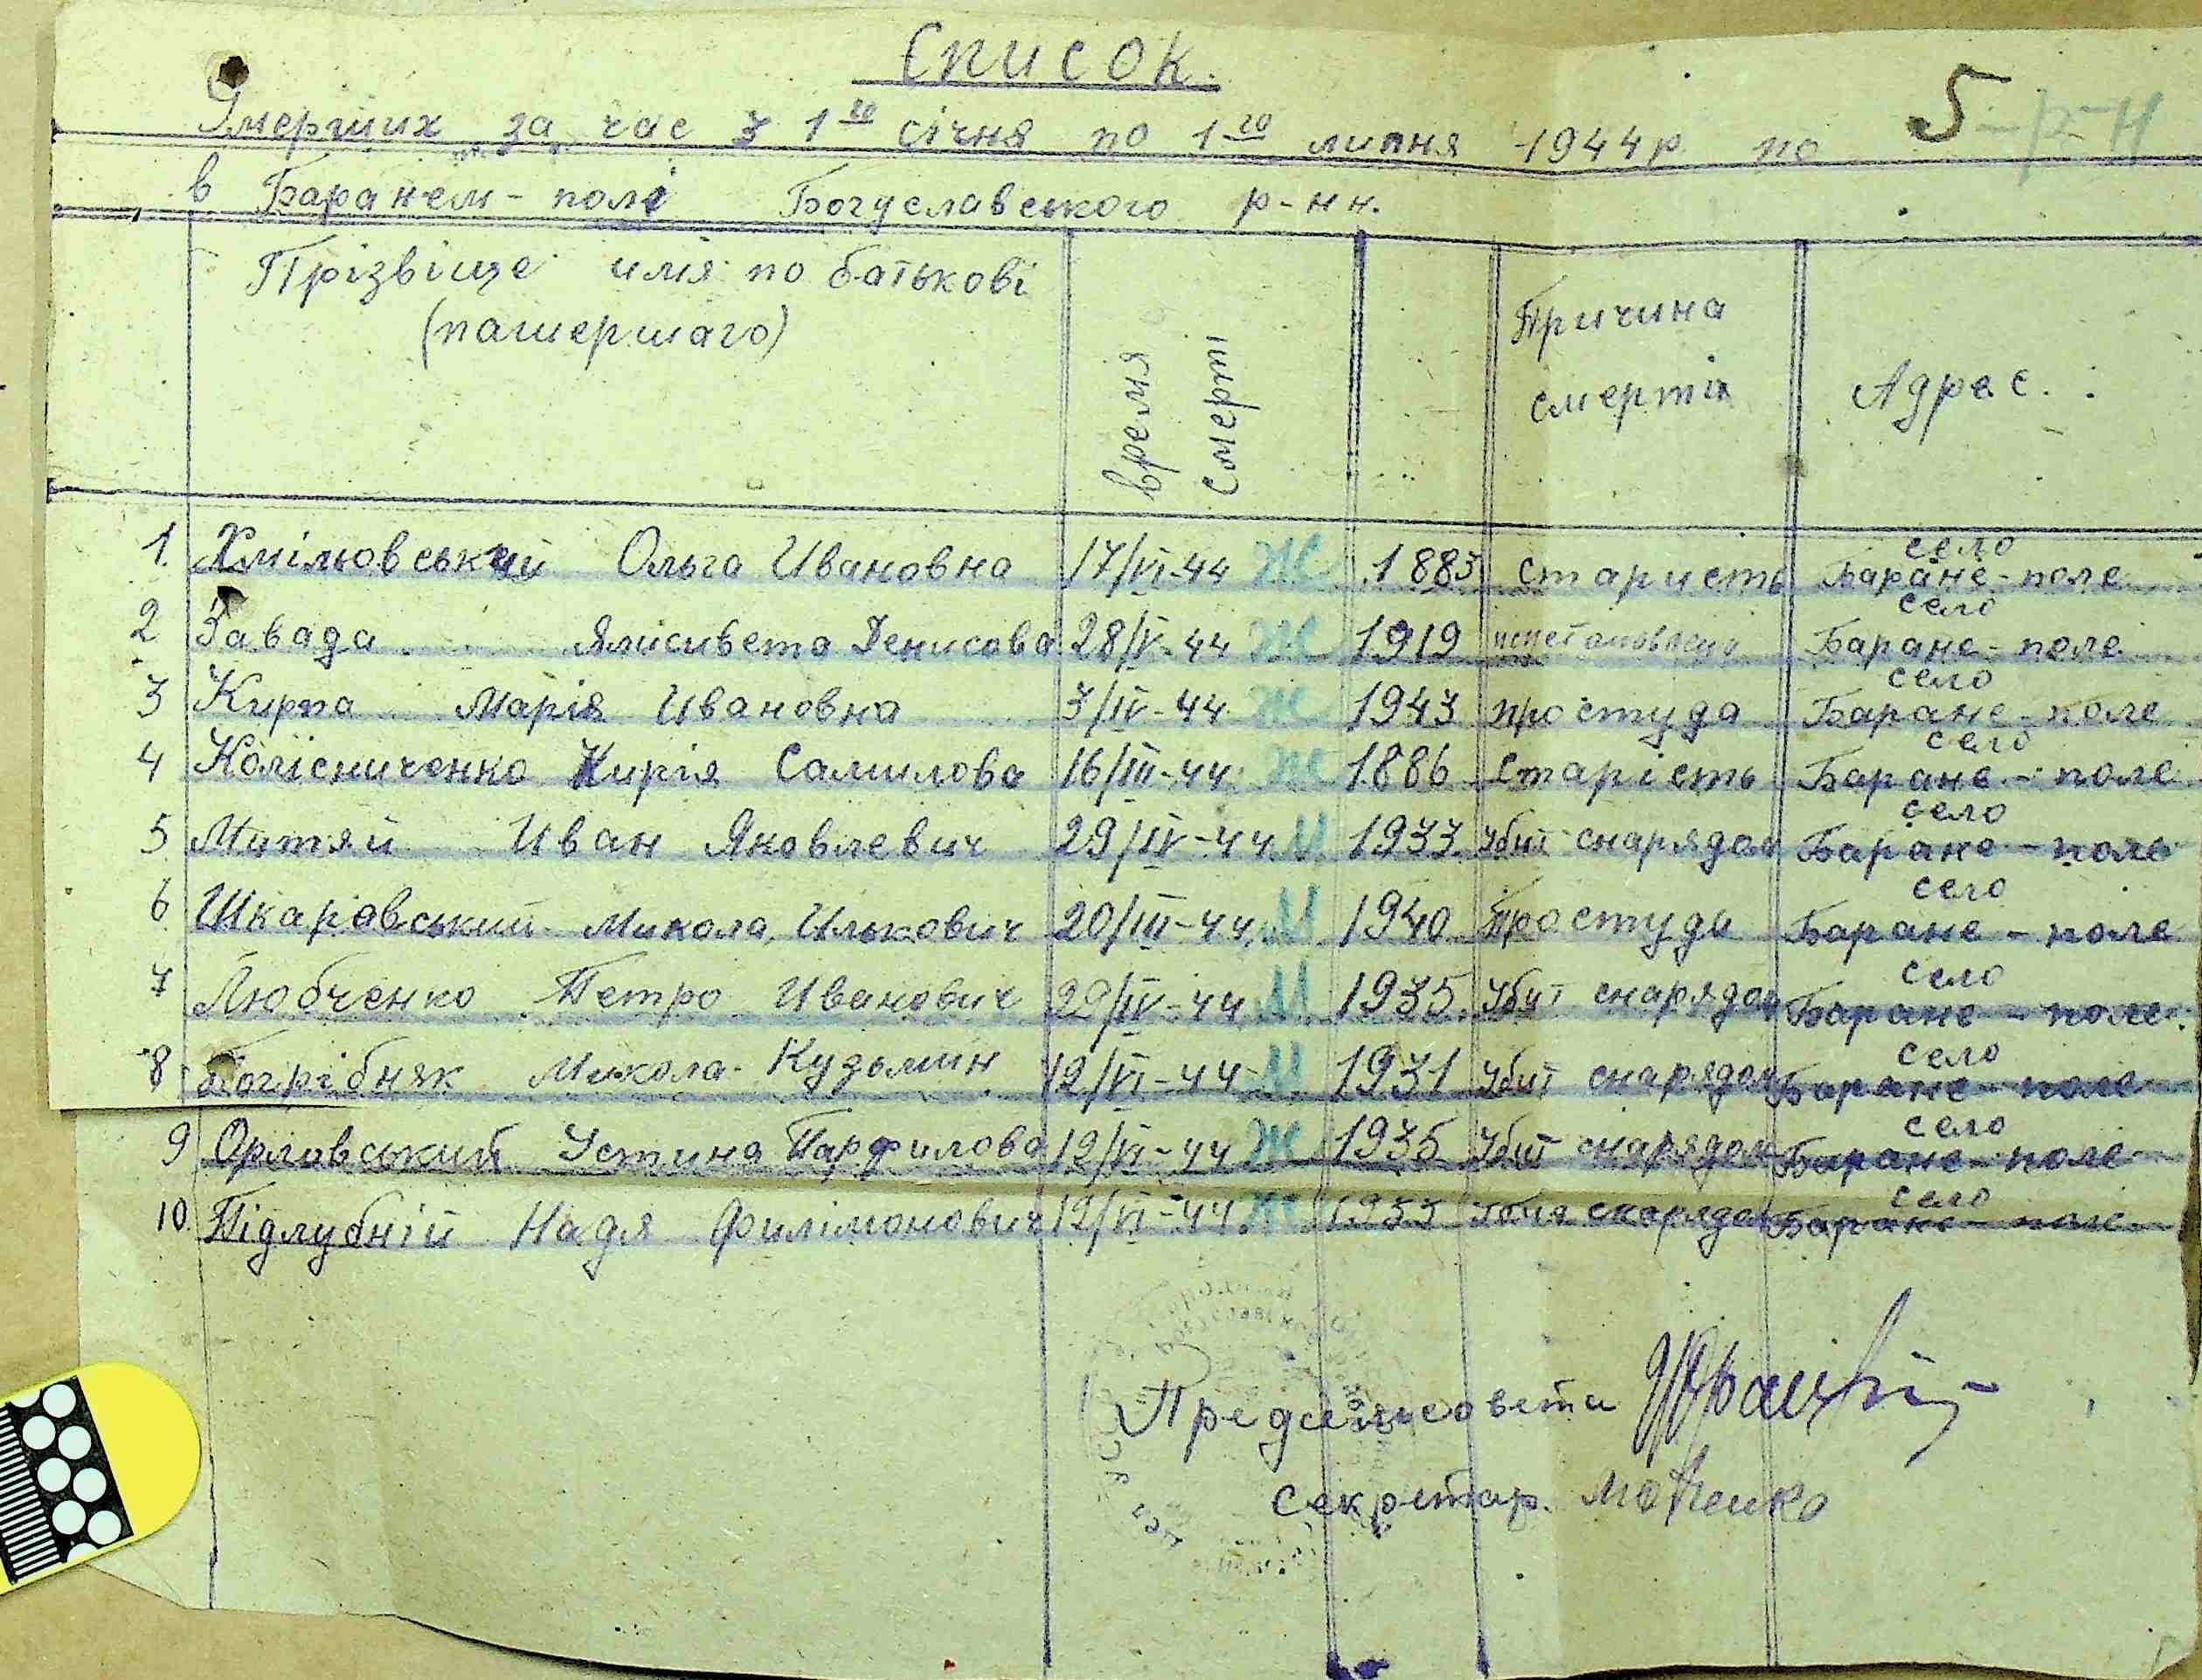 Список.
Умерших за час з 1го січня по 1го липня 1944р по 5-р-н
в Баранем-полі Богуславського р-нн.
Прізвіще имя по батькові
(памершаго)
время
смерті
Причина
смерті
Адрес.
1. Хмільовський Ольга Ивановна 17/VI-44 Ж 1883 старисть село Баране-поле
2 Завада Ялисивета Денисова 28/IV-44 Ж 1919 село Баране-поле
3 Кирпа Марія Ивановна 3/IV-44 Ж 1943 простуда село Баране-поле
4 Колісниченко Кирія Самилова 16/III-44 Ж 1886 старість село Баране-поле
5 Митяй Иван Яковлевич 29/IV-44 М 1933 Убит снарядом село Баране-поле
6. Шкаровський Микола Илькович 20/III-44 М 1940 Простуда село Баране-поле
7 Любченко Петро Иванович 29/IV-44 М 1935 Убит снарядом село Баране-поле.
8 Погрібняк Микола Кузьмин 12/VI-44 М 1931 Убит снарядом село Баране-поле
9 Орловський Устина Парфилова 12/VI-44 Ж 1935 Убит снарядом село Баране-поле
10. Підлубній Надя Филімонович 12/VI-44 Ж 1933 Убит снарядом село Баране-поле
Предсельсовета
секретар.